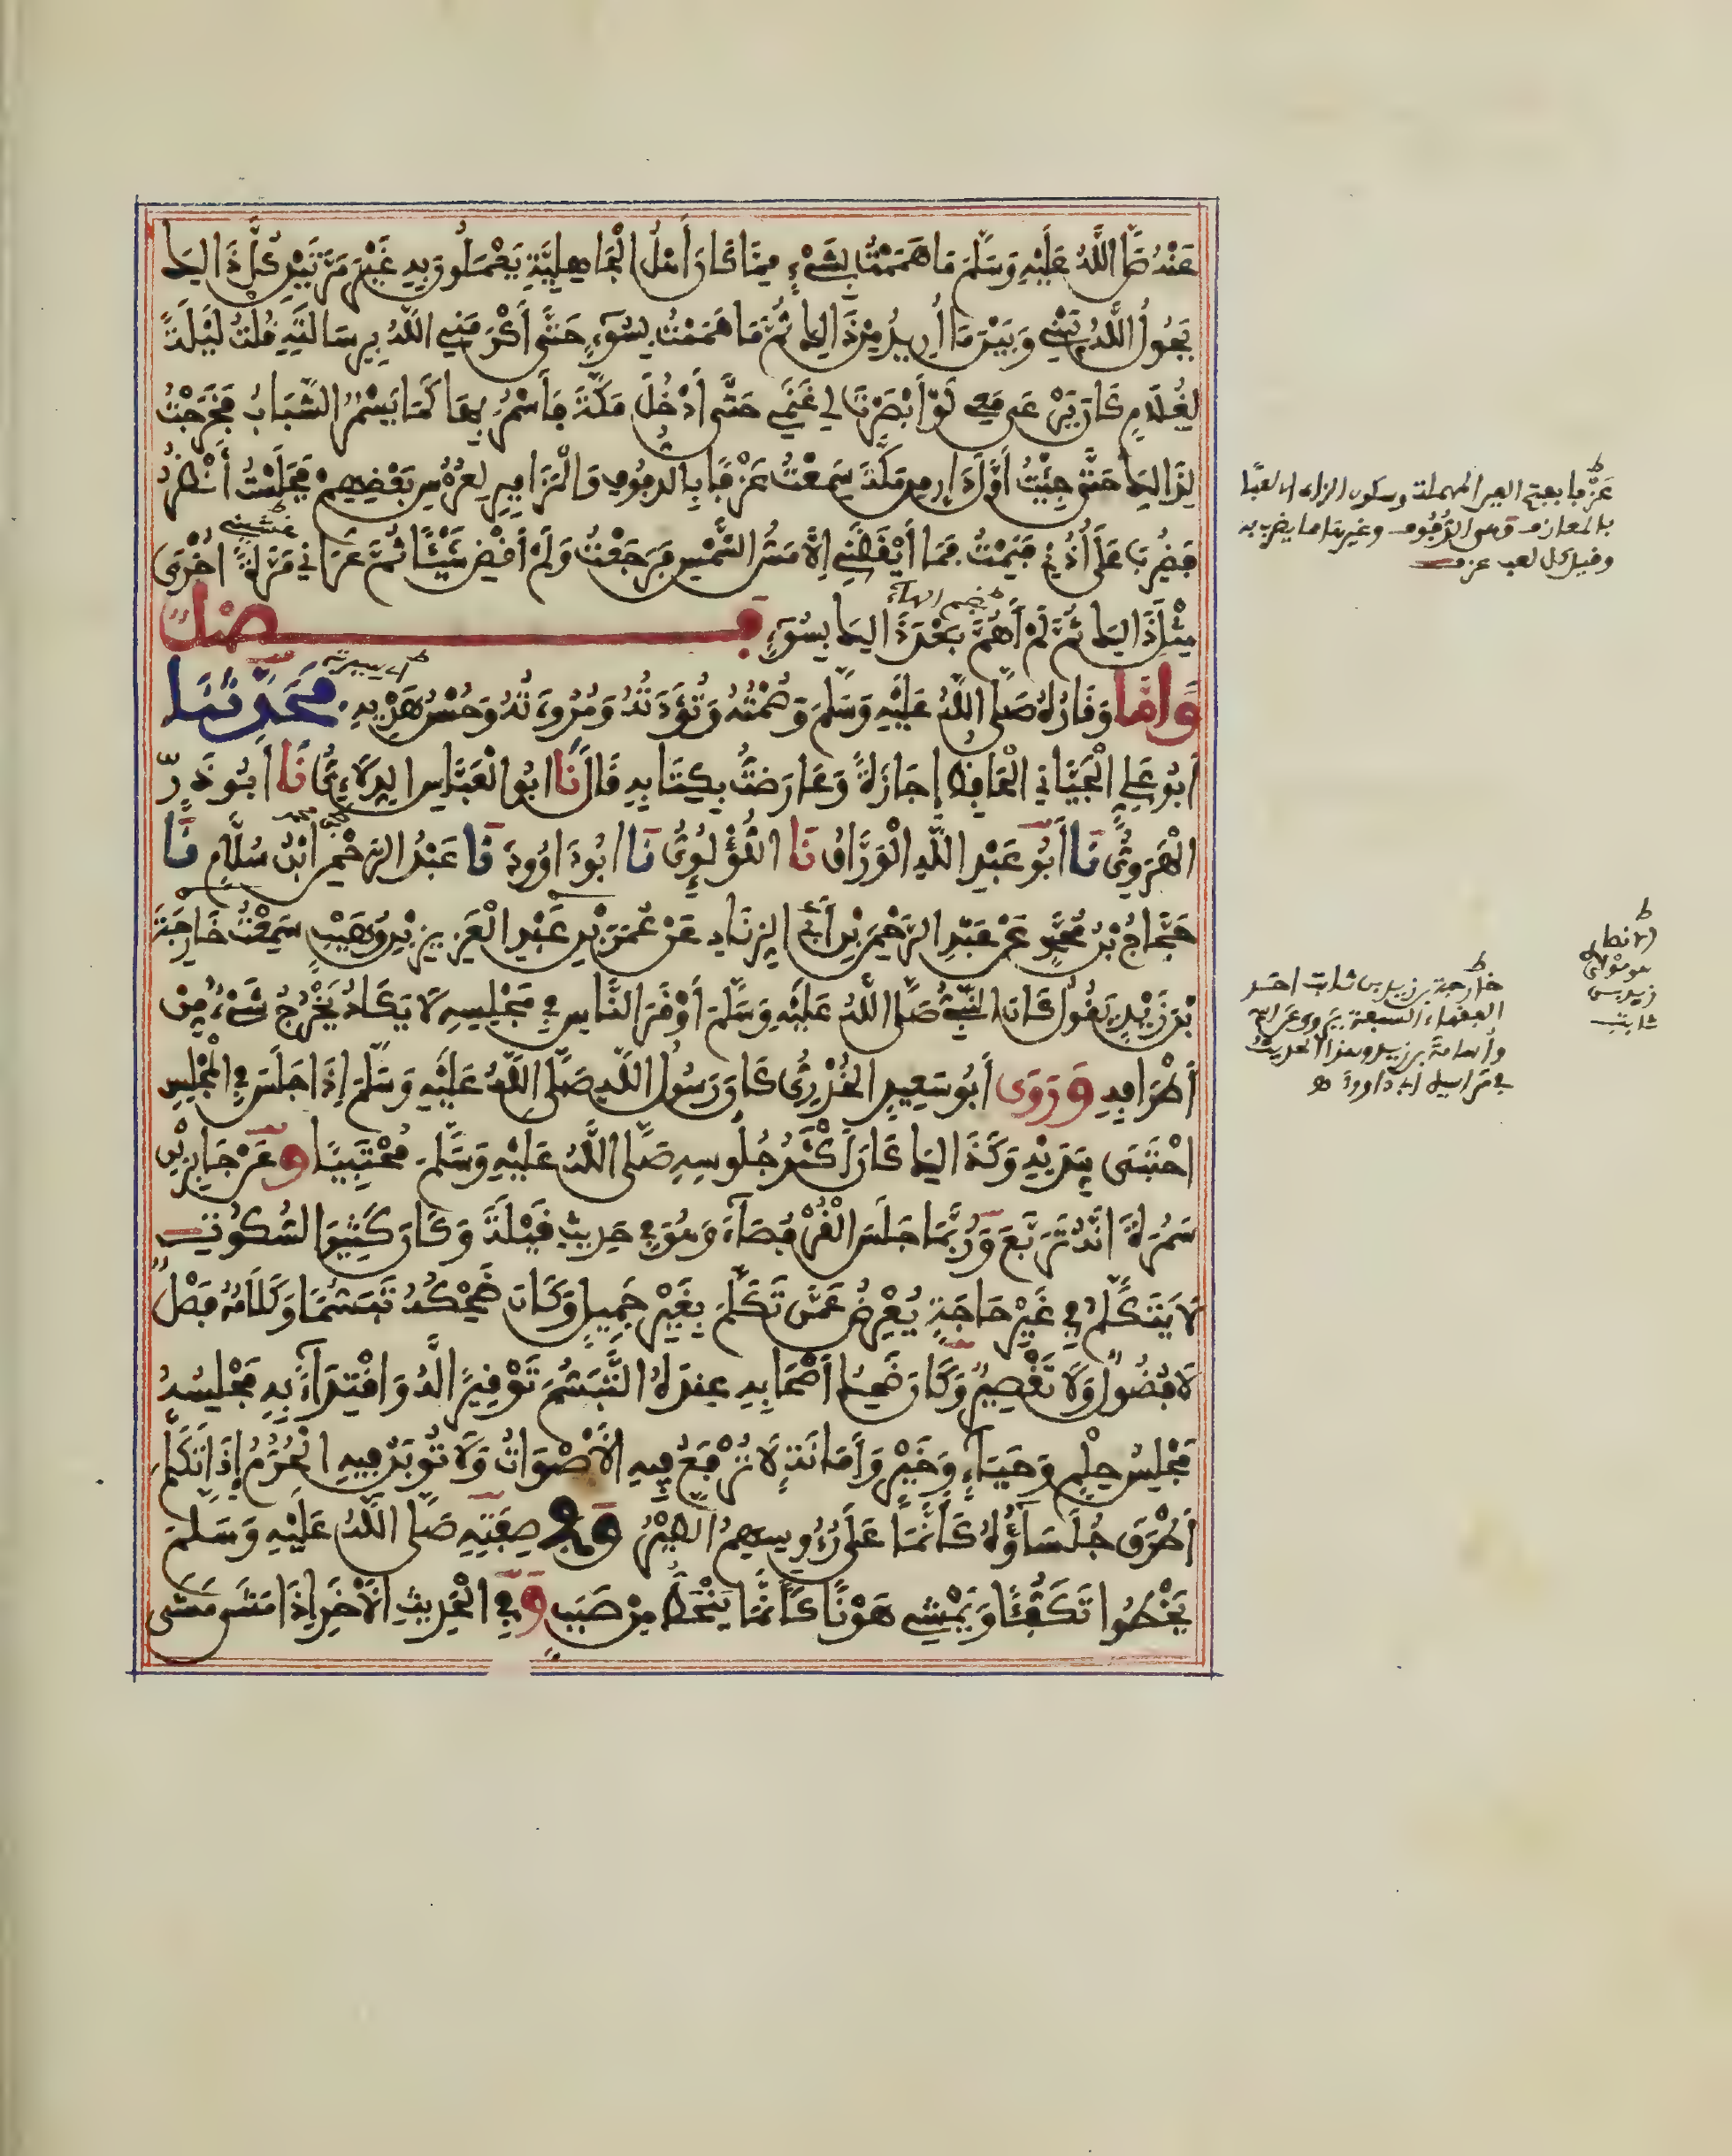 عَنْهُ صَلَّى اللَّهُ عَلَيْهِ وَسَلَّمَ مَا هَمَمْتُ بِشَيْءٍ مِمَّا كَانَ أَهْلُ الْجَاهِلِيَّةِ يَعْمَلُونَ بِهِ غَيْرَ مَرَّتَيْنِ كُلُّ ذَالِكَ
يَحُولُ اللَّهُ بَيْنِي وَبَيْنَ مَا أُرِيدُ مِنْ ذَالِكَ ثُمَّ مَا هَمَمْتُ بِسُوءٍ حَتَّى أَكْرَمَنِي اللَّهُ بِرِسَالَتِهِ قُلْتُ لَيْلَةً
لِغُلَامٍ كَانَ يَرْعَى مَعِي لَوْ أَبْصَرْتَ لِي غَنَمِي حَتَّى أَدْخُلَ مَكَّةَ فَأَسْمُرَ بِهَا كَمَا يَسْمُرُ الشَّبَابُ فَخَرَجْتُ
لِذَالِكَ حَتَّى جِئْتُ أَوَّلَ دَارٍ مِنْ مَكَّةَ سَمِعْتُ عَزْفًا بِالدُّفُوفِ وَالْمَزَامِيرِ لِعُرْسِ بَعْضِهِمْ فَجَلَسْتُ أَنْظُرُ
فَضُرِبَ عَلَى أُذُنِي فَنِمْتُ فَمَا أَيْقَظَنِي إِلَّا مَسُّ الشَّمْسِ فَرَجَعْتُ وَلَمْ أَقْضِ شَيْئًا ثُمَّ عَرَانِي مَرَّةً أُخْرَى
غشيني
مِثْلُ ذَالِكَ ثُمَّ لَمْ أَهُمَّ بَعْدَ ذَالِكَ بِسُوءٍ فَصْلٌ
بضم الهاء
وَأَمَّا وَقَارُهُ صَلَّى اللَّهُ عَلَيْهِ وَسَلَّمَ وَصَمْتُهُ وَتُؤَدَتُهُ وَمُرُوءَتُهُ وَحُسْنُ هَدْيِهِ فَحَدَّثَنَا
أَبُو عَلِيٍّ الْجَيَّانِي الْحَافِظُ إِجَازَةً وَعَارَضْتُ بِكِتَابِهِ قَالَ نَا أَبُو الْعَبَّاسِ الدِّلَاءِيُّ نَا أَبُو ذَرٍّ
الْهَرَوِيُّ نَا أَبُو عَبْدِ اللَّهِ الْوَرَّاقُ نَا اللُّؤْلُؤِيُّ نَا أَبُو دَاوُودَ نَا عَبْدُ الرَّحْمَنِ ابْنُ سَلَّامٍ نَا
حَجَّاجُ بْنُ مُحَمَّدٍ عَنْ عَبْدِ الرَّحْمَنِ بْنِ أَبِي الزِّنَادِ عَنْ عُمَرَ بْنِ عَبْدِ الْعَزِيزِ بْنِ وُهَيْبٍ سَمِعْتُ خَارِجَةَ
بْنَ زَيْدٍ يَقُولُ كَانَ النَّبِيُّ صَلَّى اللَّهُ عَلَيْهِ وَسَلَّمَ أَوْقَرَ النَّاسِ فِي مَجْلِسِهِ لَا يَكَادُ يَخْرُجُ شَيْءٌ مِنْ
أَطْرَافِهِ وَرَوَى أَبُو سَعِيدٍ الْخُدْرِيُّ كَانَ رَسُولُ اللَّهِ صَلَّى اللَّهُ عَلَيْهِ وَسَلَّمَ إِذَا جَلَسَ فِي الْمَجْلِسِ
احْتَبَى بِيَدَيْهِ وَكَذَالِكَ كَانَ أَكْثَرُ جُلُوسِهِ صَلَّى اللَّهُ عَلَيْهِ وَسَلَّمَ مُحْتَبِيًا وَعَنْ جَابِرِ بْنِ
سَمُرَةَ أَنَّهُ تَرَبَّعَ وَرُبَّمَا جَلَسَ الْقُرْفُصَاءَ وَهُوَ فِي حَدِيثِ قَيْلَةَ وَكَانَ كَثِيرَ السُّكُوتِ
لَا يَتَكَلَّمُ فِي غَيْرِ حَاجَةٍ يُعْرِضُ عَمَّنْ تَكَلَّمَ بِغَيْرِ جَمِيلٍ وَكَانَ ضَحِكُهُ تَبَسُّمًا وَكَلَامُهُ فَصْلٌ
لَا فُضُولٌ وَلَا تَقْصِيرٌ وَكَانَ ضَحِكُ أَصْحَابِهِ عِنْدَهُ التَّبَسُّمَ تَوْقِيرًا لَهُ وَاقْتِدَاءً بِهِ مَجْلِسُهُ
مَجْلِسُ حِلْمٍ وَحَيَاءٍ وَخَيْرٍ وَأَمَانَةٍ لَا تُرْفَعُ فِيهِ الْأَصْوَاتُ وَلَا تُؤْبَنُ فِيهِ الْحُرَمُ إِذَا تَكَلَّمَ
أَطْرَقَ جُلَسَاؤُهُ كَأَنَّمَا عَلَى رُءُوسِهِمُ الطَّيْرُ وَفِي صِفَتِهِ صَلَّى اللَّهُ عَلَيْهِ وَسَلَّمَ
يَخْطُوا تَكَفُّئًا وَيَمْشِي هَوْنًا كَأَنَّمَا يَنْحَطُّ مِنْ صَبَبٍ وَفِي الْحَدِيثِ الْآخَرِ إِذَا مَشَى مَشَى
عزفا بفتح العين المهملة وسكون الزاء اي لعبا
بالمعازف وهي الدفوف وغيرها مما يضرب به
وقيل كل لعب عزف
خارجة بن زيد بن ثابت احد
الفقهاء السبعة يروي عن ابيه
وأسامة بن زيد وهذا الحديث
في مراسيل ابي داوود
زيد بن
ثابت